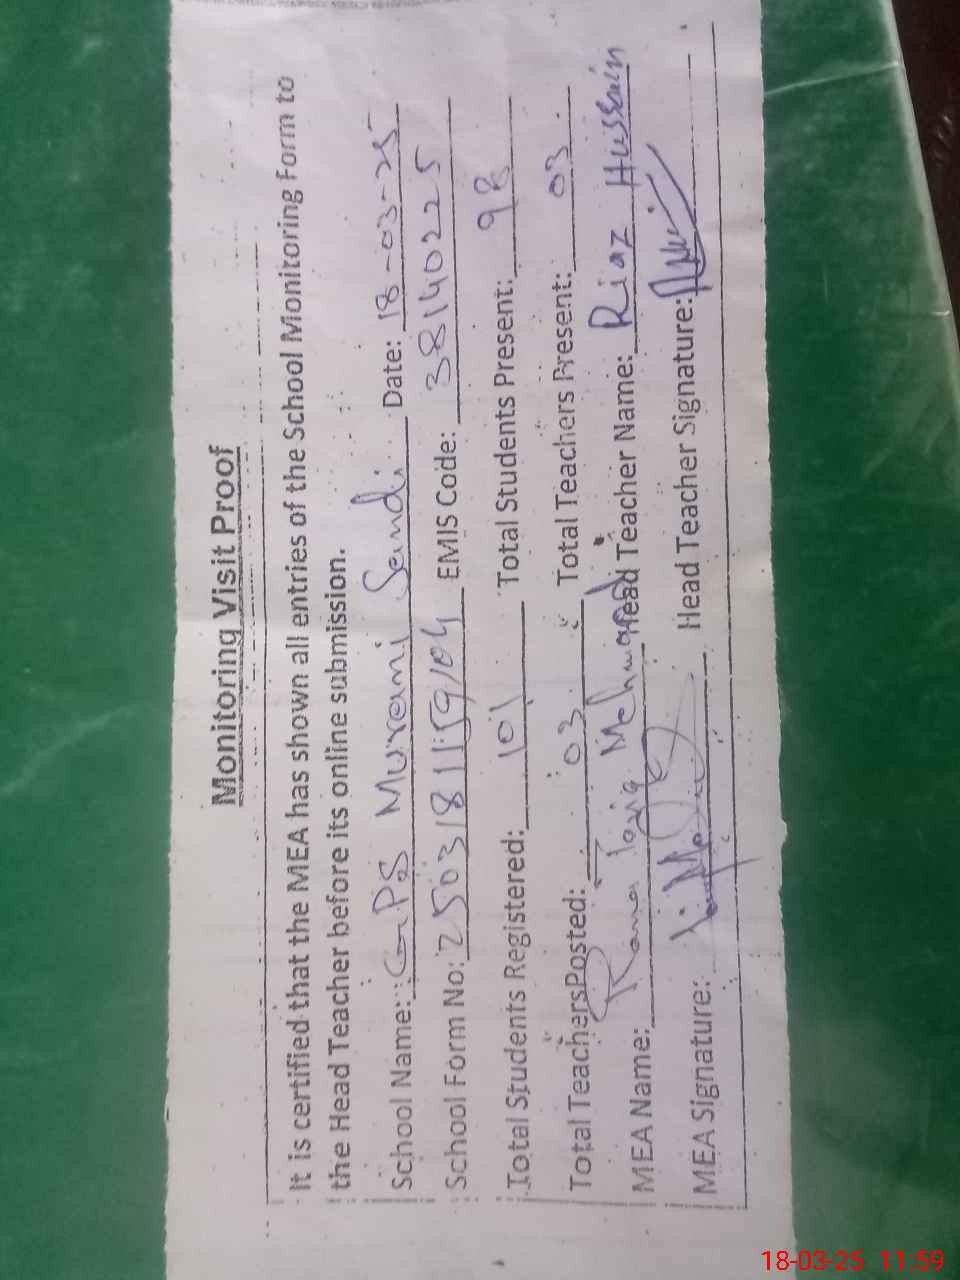 Monitoring Visit Proof
It is certified that the MEA has shown all entries of the School Monitoring Form to
the Head Teacher before its online submission.
School Name: GPS Murrani Sandi. Date: 18-03-25
School Form No: 2503181159104 EMIS Code: 38140225
Total Students Registered: 101 Total Students Present: 98
Total TeachersPosted: 03 Total Teachers Present: 03
MEA Name: Rana Tariq Mehmood Head Teacher Name: Riaz Hussain
MEA Signature: Head Teacher Signature:
18-03-25 11:59